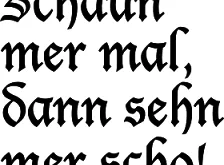 schaun
mer mal,
dann sehn
mer scho!